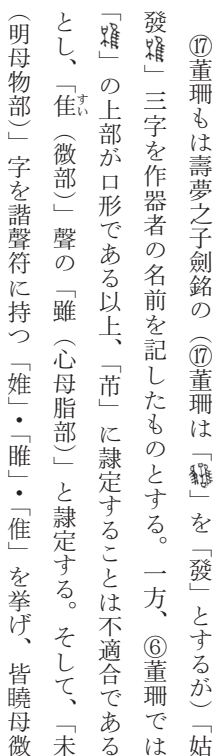 ⑰董珊もは壽夢之子劍銘の（⑰董珊は「」を「發」とするが）「姑
發」三字を作器者の名前を記したものとする。一方、⑥董珊では
「」の上部が口形である以上、「芾」に隷定することは不適合である
とし、「隹すい（微部）」聲の「雖（心母脂部）」と隷定する。そして、「未
（明母物部）」字を諧聲符に持つ「婎」・「睢」・「倠」を挙げ、皆曉母微